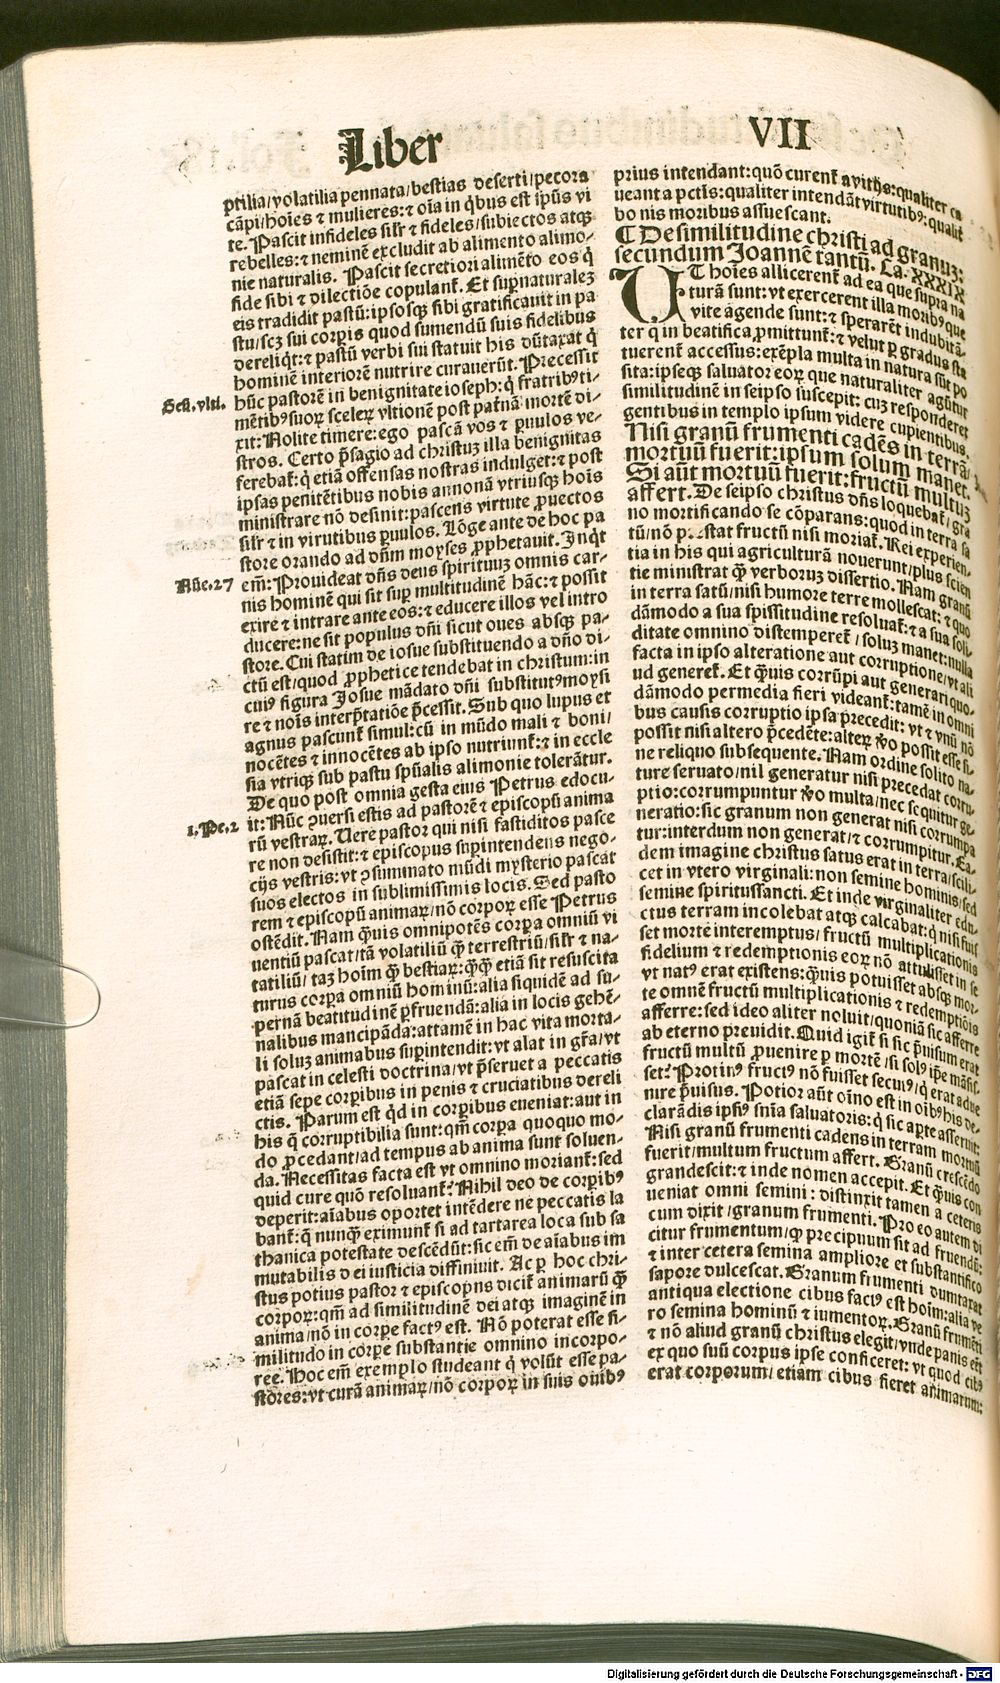 Liber VII
ptilia/volatilia pennata/bestias deserti/pecora
cāpi/hoies ⁊ mulieres:⁊ oīa in q̇bus est ip̄us vi
te. Pascit infideles silr̄ ⁊ fideles/subiectos atq̢
rebelles:⁊ neminē excludit ab alimento alimo-
nie naturalis. Pascit secretiori alimēto eos q̇
fide sibi ⁊ dilectiōe copulant̄. Et sup̄naturalez
eis tradidit pastū:ipsosq̢ sibi gratificauit in pa
stu/scz sui corꝑis quod sumendū suis fidelibus
dereliq̇t:⁊ pastū verbi sui statuit his dūtaxat q̇
hominē interiorē nutrire curauerūt. Precessit
Geñ.vlti. hūc pastorē in benignitate ioseph:q̇ fratribꝰti-
mētibꝰsuoꝝ sceleꝝ vltionē post pat̄nā mortē di-
xit:Nolite timere:ego pascā vos ⁊ ꝑuulos ve-
stros. Certo p̄sagio ad christuz illa benignitas
ferebat̄:q̇ etiā offensas nostras indulget:⁊ post
ipsas penitētibus nobis annonā vtriusq̢ hoīs
ministrare nō desinit:pascens virtute ꝓuectos
silr̄ ⁊ in virutibus ꝑuulos. Lōge ante de hoc pa
store orando ad dn̄m moyses ꝓphetauit. Inq̇t
Nūe.27 em̄:Prouideat dn̄s deus spirituuz omnis car-
nis hominē qui sit suꝑ multitudinē hāc:⁊ possit
exire ⁊ intrare ante eos:⁊ educere illos vel intro
ducere:ne sit populus dn̄i sicut oues absq̢ pa-
store. Cui statim de iosue substituendo a dn̄o di-
ctū est/quod ꝓphetice tendebat in christum:in
cuiꝰ figura Josue mādato dn̄i substitutꝰmoysi
re ⁊ noīs interp̄tatiōe p̄cessit. Sub quo lupus et
agnus pascunt̄ simul:cū in mūdo mali ⁊ boni/
nocētes ⁊ innocētes ab ipso nutriunt̄:⁊ in eccle
sia vtriq̢ sub pastu sp̄ualis alimonie tolerātur.
De quo post omnia gesta eius Petrus edocu-
1.Pe.2 it:Nūc ꝯuersi estis ad pastorē ⁊ episcopū anima
rū vestraꝝ. Uere pastor qui nisi fastiditos pasce
re non desistit:⁊ episcopus suꝑintendens nego-
cijs vestris:vt ꝯsummato mūdi mysterio pascat
suos electos in sublimissimis locis. Sed pasto
rem ⁊ episcopū animaꝝ/nō corpoꝝ esse Petrus
ostēdit. Nam q̄uis omnipotēs corꝑa omniū vi
uentiū pascat/tā volatiliū q̄ terrestriū/silr̄ ⁊ na-
tatiliū/taz hoīm q̄ bestiaꝝ:q̄q̄ etiā sit resuscita
turus corꝑa omniū hominū:alia siquidē ad su-
pernā beatitudinē ꝑfruendā:alia in locis gehē-
nalibus mancipāda:attamē in hac vita morta-
li soluz animabus suꝑintendit:vt alat in gr̄a/vt
pascat in celesti doctrina/vt p̄seruet a peccatis
etiā sepe corꝑibus in penis ⁊ cruciatibus dereli
ctis. Parum est q̇d in corꝑibus eueniat:aut in
his q̄ corruptibilia sunt:qm̄ corpa quoquo mo-
do ꝓcedant/ad tempus ab anima sunt soluen-
da. Necessitas facta est vt omnino moriant̄:sed
quid cure quō resoluant̄? Nihil deo de corꝑibꝰ
deperit:aīabus oportet intēdere ne peccatis la
bant̄:q̄ nunq̄ eximunt̄ si ad tartarea loca sub sa
thanica potestate descēdūt:sic em̄ de aīabus im
mutabilis dei iusticia diffiniuit. Ac ꝑ hoc chri-
stus potius pastor ⁊ episcopns dicit̄ animarū q̄
corpoꝝ:qm̄ ad similitudinē dei atq̢ imaginē in
anima/nō in corpe factꝰ est. Nō poterat esse si-
militudo in corpe substantie omnino incorpo-
ree. Hoc em̄ exemplo studeant q̇ volūt esse pa-
stores:vt curā animaꝝ/nō corpoꝝ in suis ouibꝰ
prius intendant:quō curent̄ a vitijs:qualiter ca
ueant a pctīs:qualiter intendāt virtutibꝰ:qualit̄
bonis moribus assuescant.
¶ De similitudine christi ad granuz:
secundum Joannē tantū. Ca. XXXIX
UT hoīes allicerent̄ ad ea que supra na
turā sunt:vt exercerent illa moribꝰque
vite agende sunt:⁊ sperarēt indubitā-
ter q̄ in beatifica ꝓmittunt̄:⁊ velut ꝑ gradus sta
tuerent̄ accessus:exēpla multa in natura sūt po
sita:ipseq̢ saluator eoꝝ que naturaliter agūtur
similitudinē in seipso suscepit: cuz responderet
gentibus in templo ipsum videre cupientibus.
Nisi granū frumenti cadēs in terrā/
mortuū fuerit:ipsum solum manet.
Si aūt mortuū fuerit:fructū multuz
affert. De seipso christus dn̄s loquebat̄/gra
no mortificando se cōparans:quod in terra sa
tū/nō p̄stat fructū nisi moriat̄. Rei experien-
tia in his qui agriculturā nouerunt/plus scien
tie ministrat q̄ verboruz dissertio. Nam granū
in terra satū/nisi humore terre mollescat: ⁊ quo
dāmodo a sua spissitudine resoluat̄:⁊ a sua soli-
ditate omnino distemperet̄/soluz manet:nulla
facta in ipso alteratione aut corruptione/vt ali
ud generet̄. Et q̄uis corrūpi aut generari quo-
dāmodo permedia fieri videant̄:tamē in omni
bus causis corruptio ipsa p̄recedit: vt ⁊ vnū nō
possit nisi altero p̄cedēte:alteꝝ ꝟo possit esse si-
ne reliquo subsequente. Nam ordine solito na-
ture seruato/nil generatur nisi precedat corru-
ptio:corrumpuntur ꝟo multa/nec sequitur ge-
neratio:sic granum non generat nisi corrumpa
tur:interdum non generat/⁊ corrumpitur. Ea-
dem imagine christus satus erat in terra/scili-
cet in vtero virginali:non semine hominis/sed
semine spiritussancti. Et inde virginaliter edu-
ctus terram incolebat atq̢ calcabat:q̇ nisi fuis
set morte interemptus/fructū multiplicationis
fidelium ⁊ redemptionis eoꝝ nō attulisset in se
vt natꝰ erat existens:q̄uis potuisset absq̢ mor-
te omnē fructū multiplicationis ⁊ redemptiōis
afferre:sed ideo aliter noluit/quoniā sic afferre
ab eterno preuidit. Quid igit̄ si sic p̄uisum erat
fructū multū ꝓuenire ꝑ mortē/si solꝰ ip̄e māsis-
set? Protinꝰ fructꝰ nō fuisset secutꝰ/q̇ erat adue
nire p̄uisus. Potior aūt oīno est in oībꝰhis de-
clarādis ip̄iꝰ sn̄ia saluatoris:q̇ sic aꝑte asseruit:
Nisi granū frumenti cadens in terram mortuū
fuerit/multum fructum affert. Granū crescēdo
grandescit:⁊ inde nomen accepit. Et q̄uis con
ueniat omni semini: distinxit tamen a ceteris
cum dixit/granum frumenti. Pro eo autem di
citur frumentum/qꝫ precipuum sit ad fruendū:
⁊ inter cetera semina ampliore et substantifico
sapore dulcescat. Granum frumenti dumtaxat
antiqua electione cibus factꝰ est hoīm:alia ve
ro semina hominū ⁊ iumentoꝝ. Granū frumēti
⁊ nō aliud granū christus elegit/vnde panis eēt
ex quo suū corpus ipse conficeret: vt quod cibꝰ
erat corporum/etiam cibus fieret animarum:
Digitalisierung gefördert durch die Deutsche Forschungsgemeinschaft - DFG